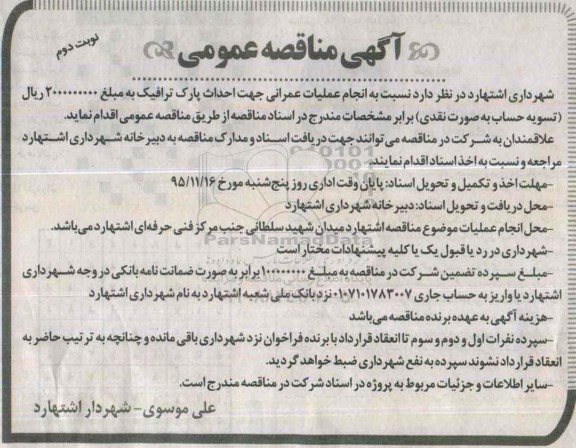 نوبت دوم
آگهی مناقصه عمومی
شهرداری اشتهارد در نظر دارد نسبت به انجام عملیات عمرانی جهت احداث پارک ترافیک به مبلغ ۲۰۰۰۰۰۰۰۰۰ ریال
(تسویه حساب به صورت نقدی) برابر مشخصات مندرج در اسناد مناقصه از طریق مناقصه عمومی اقدام نماید.
علاقمندان به شرکت در مناقصه می توانند جهت دریافت اسناد و مدارک مناقصه به دبیرخانه شهرداری اشتهارد
مراجعه و نسبت به اخذ اسناد اقدام نمایند.
-مهلت اخذ و تکمیل و تحویل اسناد: پایان وقت اداری روز پنج شنبه مورخ ۹۵/۱۱/۱۶
-محل دریافت و تحویل اسناد: دبیرخانه شهرداری اشتهارد
-محل انجام عملیات موضوع مناقصه اشتهارد میدان شهید سلطانی جنب مرکز فنی حرفه‌ای اشتهارد می‌باشد.
ParsNamadData
-شهرداری در رد یا قبول یک یا کلیه پیشنهادات مختار است
-مبلغ سپرده تضمین شرکت در مناقصه به مبلغ ۱۰۰۰۰۰۰۰۰ برابر به صورت ضمانت نامه بانکی در وجه شهرداری
اشتهارد یا واریز به حساب جاری ۰۱۰۷۱۰۱۷۸۳۰۰۷ نزد بانک ملی شعبه اشتهارد به نام شهرداری اشتهارد
-هزینه آگهی به عهده برنده مناقصه می‌باشد
-سپرده نفرات اول و دوم و سوم تا انعقاد قرارداد با برنده فراخوان نزد شهرداری باقی مانده و چنانچه به ترتیب حاضر به
انعقاد قرارداد نشوند سپرده به نفع شهرداری ضبط خواهد گردید.
-سایر اطلاعات و جزئیات مربوط به پروژه در اسناد شرکت در مناقصه مندرج است.
علی موسوی- شهردار اشتهارد